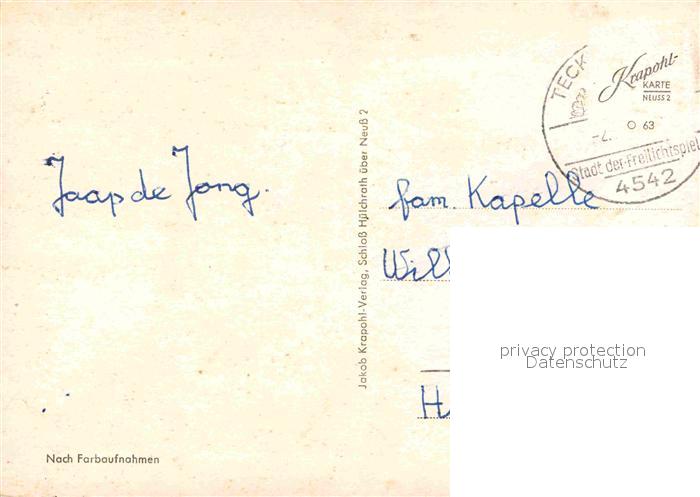 TECK
Krapohl-
KARTE
NEUSS 2
63
Stadt der Freilichtspiel
4542
Jaap de Jong.
fam. Kapelle
Will
H
Jakob Krapohl-Verlag, Schloß Hülchrath über Neuß 2
privacy protection
Datenschutz
Nach Farbaufnahmen